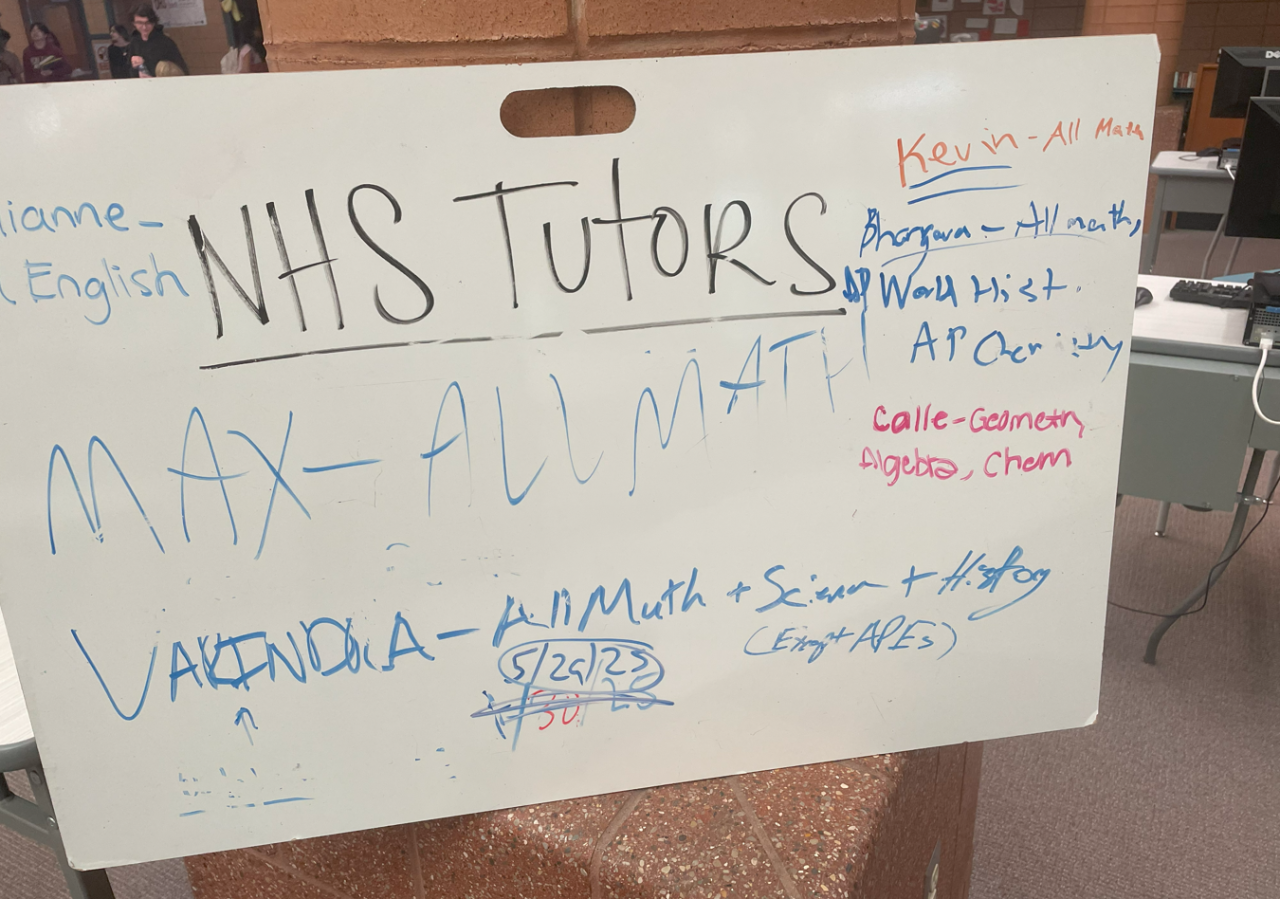 ianne-
English
NHS TUTORS
Kevin - All Math
Bhargava - All math,
AP World Hist.
AP Chemistry
Calle - Geometry
Algebra, Chem
MAX - ALL MATH
- All Math + Science + History
(Except APES)
5/29/25